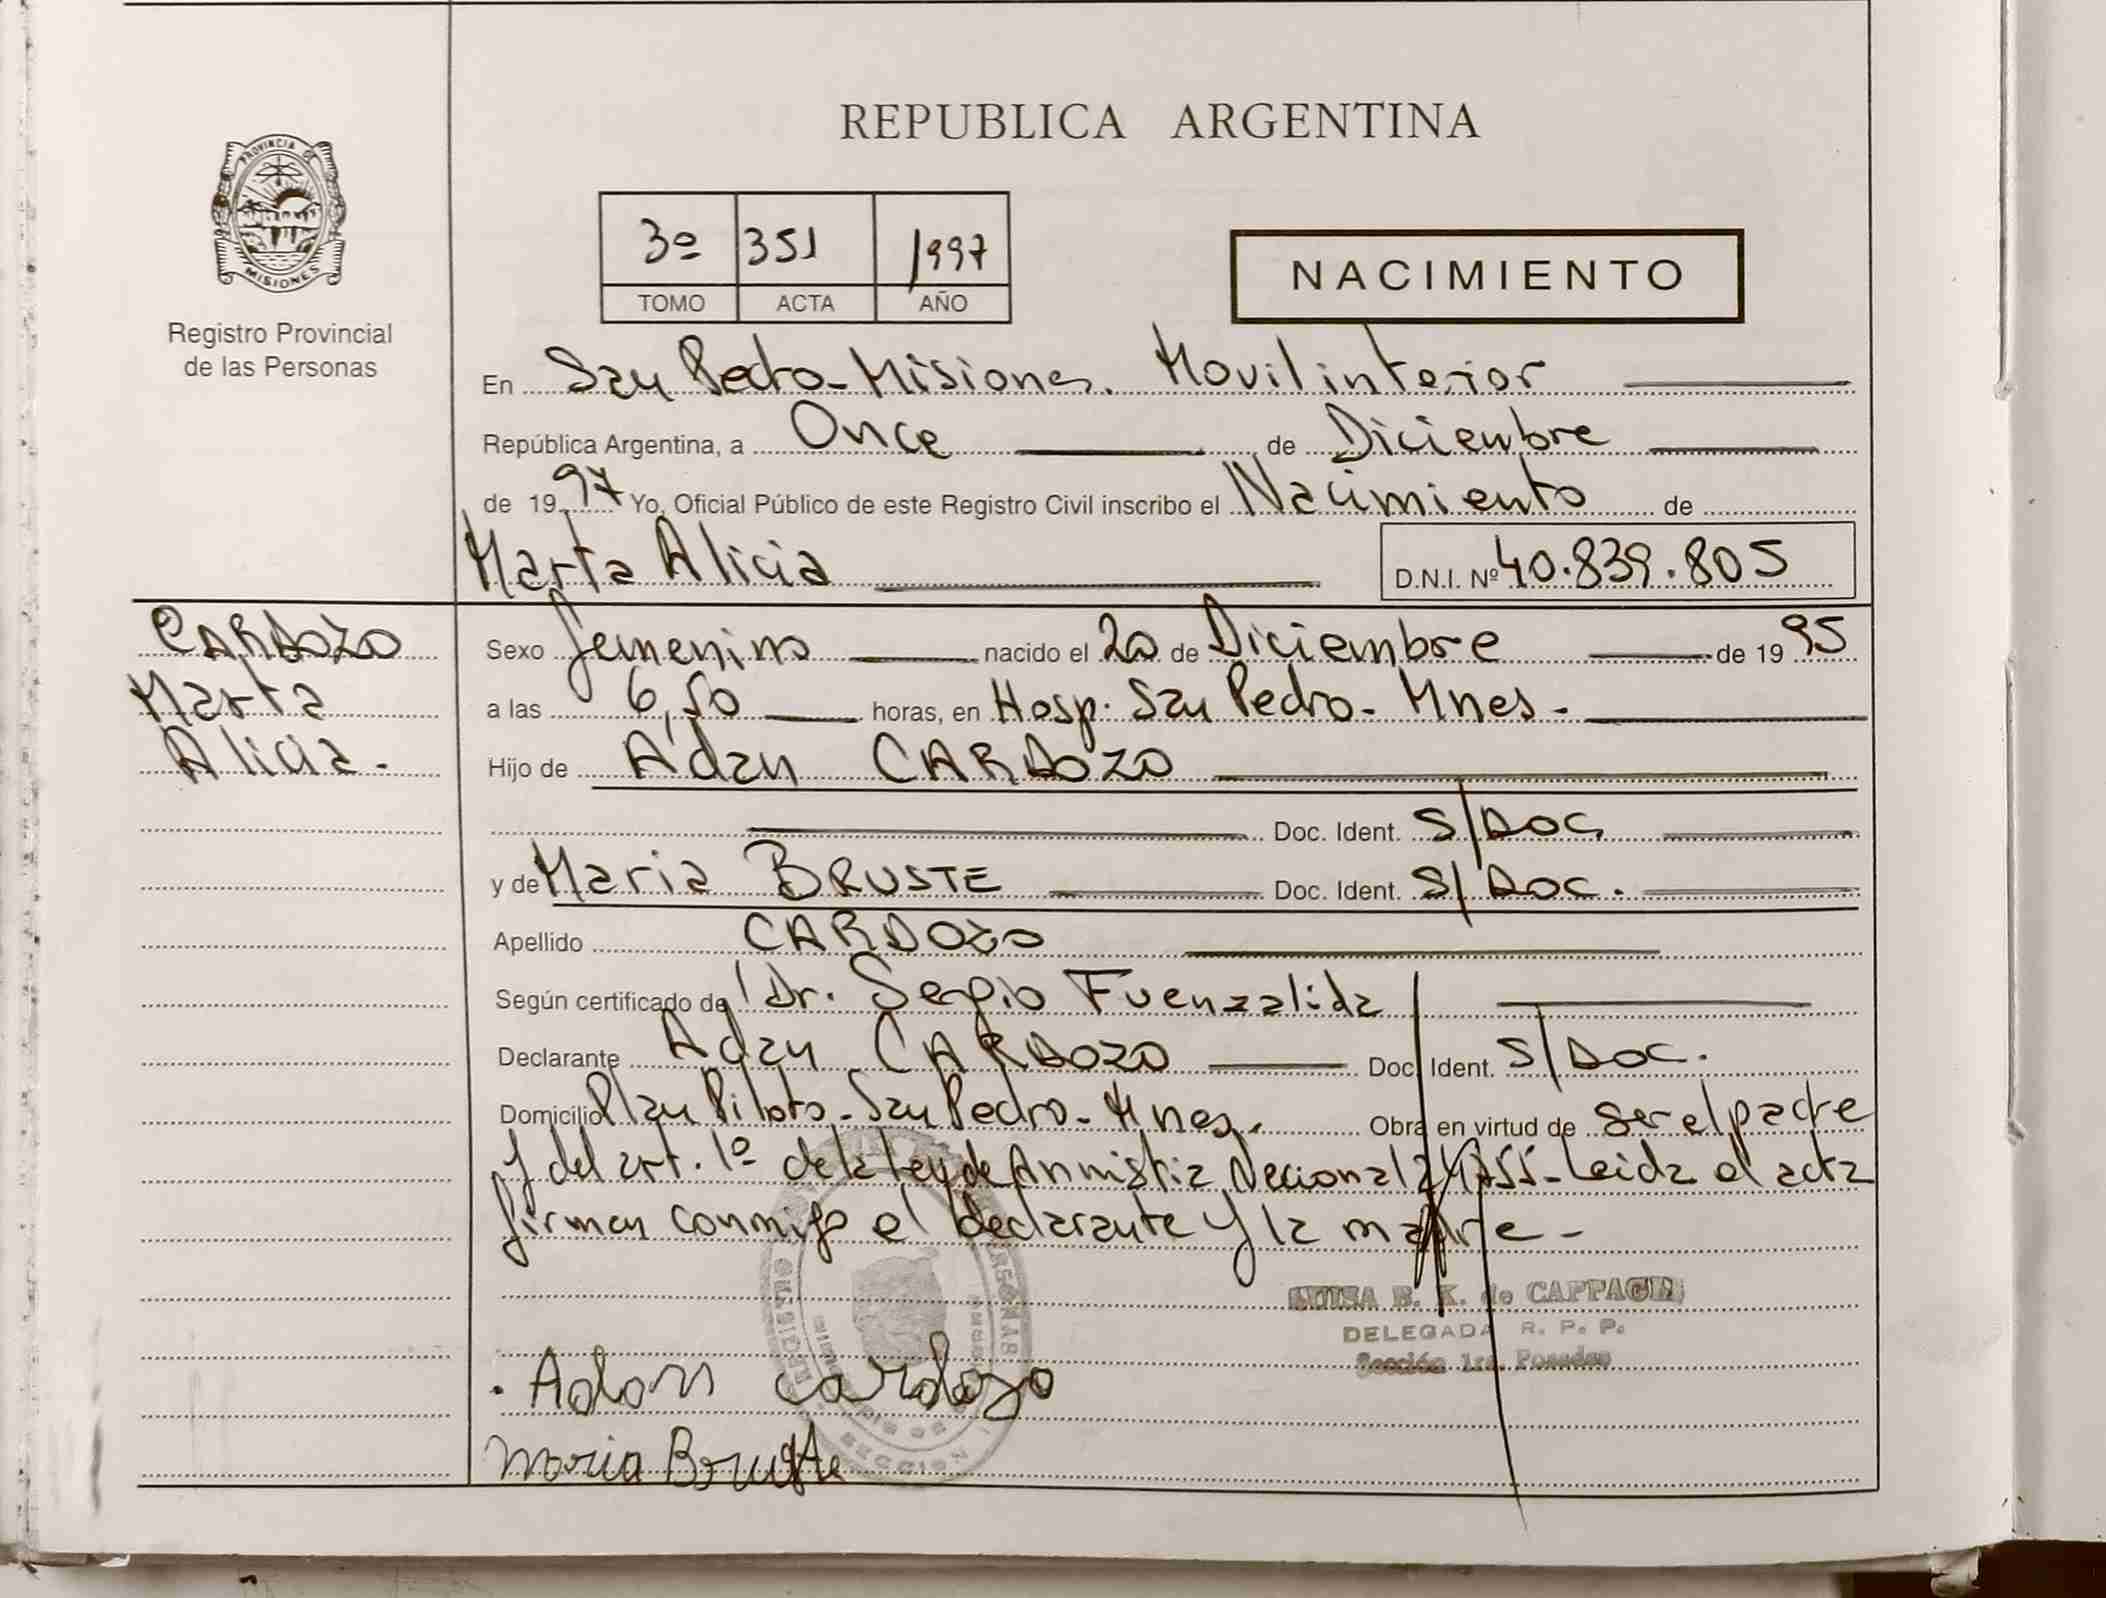 REPUBLICA ARGENTINA
PROVINCIA DE
MISIONES
Registro Provincial
de las Personas
3º 351 1997
TOMO ACTA AÑO
NACIMIENTO
En San Pedro - Misiones. Movil interior
República Argentina, a Once de Diciembre
de 1997 Yo, Oficial Público de este Registro Civil inscribo el Nacimiento de
Marta Alicia D.N.I. Nº 40.839.805
CARDOZO
Marta
Alicia.
Sexo femenino nacido el 20 de Diciembre de 1995
a las 6,50 horas, en Hosp. San Pedro - Mnes.
Hijo de Adan CARDOZO
Doc. Ident. S/DOC
y de Maria BRUSTE Doc. Ident. S/DOC.
Apellido CARDOZO
Según certificado de Dr. Sergio Fuenzalida
Declarante Adan CARDOZO Doc. Ident. S/DOC.
Domicilio Plan Piloto - San Pedro - Mnes. Obra en virtud de ser el padre
y del art. 1º de la Ley de Anmistia Nacional - Leida el acta
firman conmigo el declarante y la madre -
B. K. de
DELEGADA R. P. P.
Sección 1ra. Posadas
Adan Cardozo
Maria Bruste
SECCION